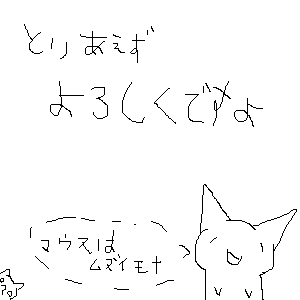 とりあえず
よろしくですよ
マウスは
ムズイモナ